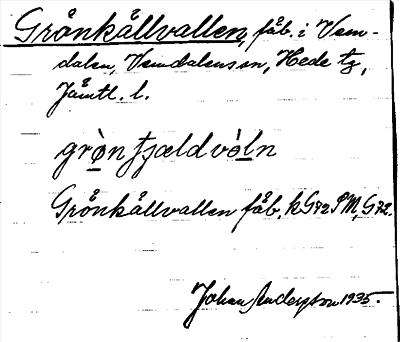 Grönkällvallen, fäb. i Vem-
dalen, Vemdalens sn, Hede tg,
Jämtl. l.
grò̠n tʃældvò̠ln
Grönkällvallen fäb. k G72 PM, G72.
Johan Anderzson 1935.